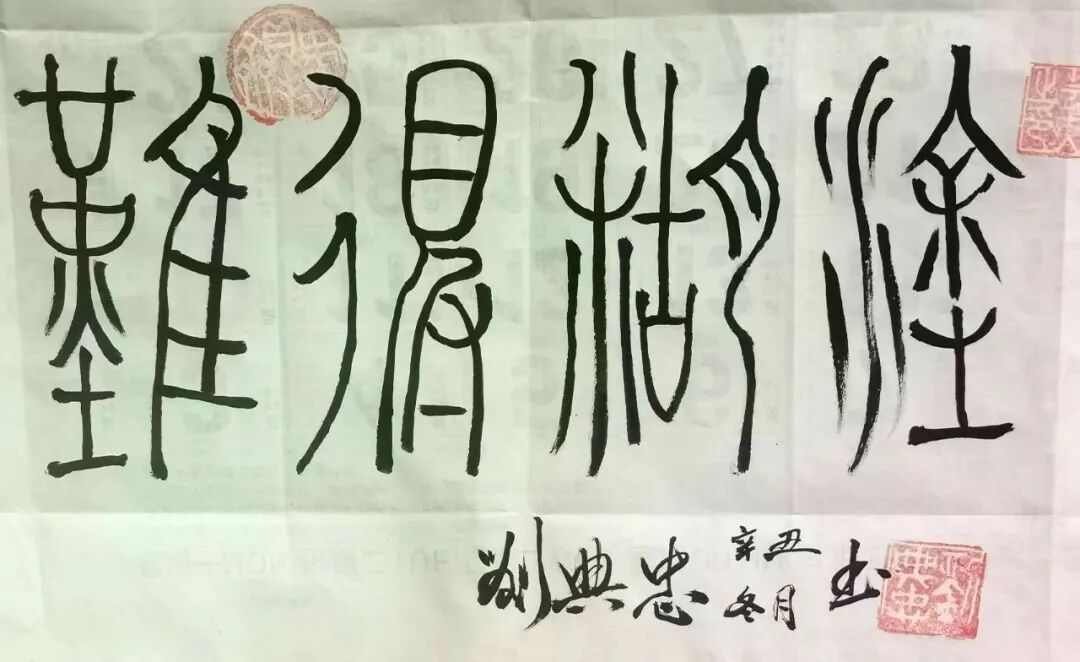 難得糊塗
劉典忠 辛丑冬月 书